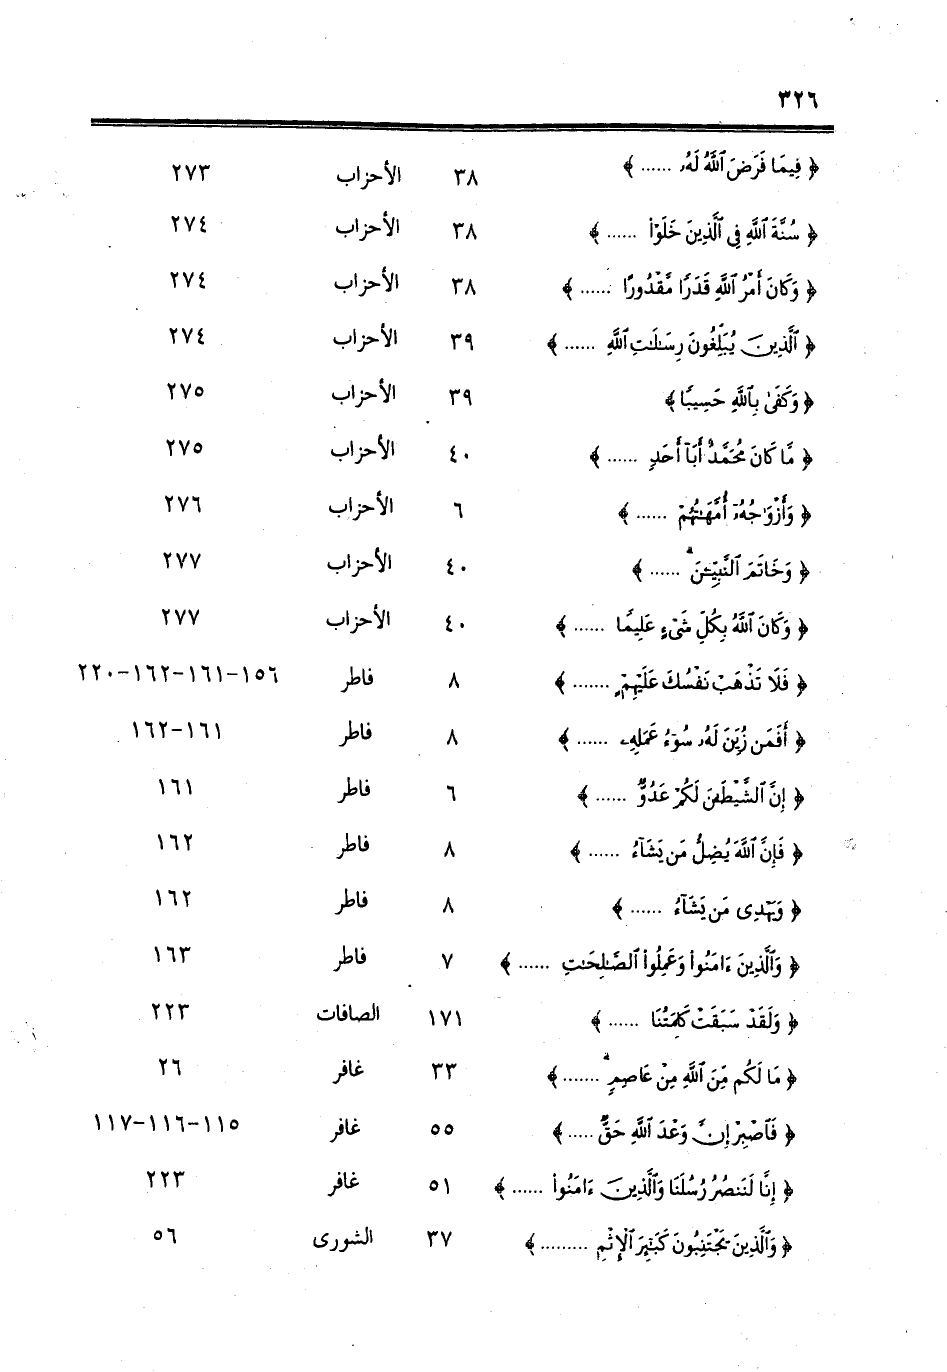 ٣٢٦
﴿ فِيمَا فَرَضَ ٱللَّهُ لَهُۥ ...... ﴾ ٣٨ الأحزاب ٢٧٣
﴿ سُنَّةَ ٱللَّهِ فِى ٱلَّذِينَ خَلَوْا۟ ...... ﴾ ٣٨ الأحزاب ٢٧٤
﴿ وَكَانَ أَمْرُ ٱللَّهِ قَدَرًا مَّقْدُورًا ...... ﴾ ٣٨ الأحزاب ٢٧٤
﴿ ٱلَّذِينَ يُبَلِّغُونَ رِسَـٰلَـٰتِ ٱللَّهِ ...... ﴾ ٣٩ الأحزاب ٢٧٤
﴿ وَكَفَىٰ بِٱللَّهِ حَسِيبًا ﴾ ٣٩ الأحزاب ٢٧٥
﴿ مَّا كَانَ مُحَمَّدٌ أَبَآ أَحَدٍ ...... ﴾ ٤٠ الأحزاب ٢٧٥
﴿ وَأَزْوَٰجُهُۥٓ أُمَّهَـٰتُهُمْ ...... ﴾ ٦ الأحزاب ٢٧٦
﴿ وَخَاتَمَ ٱلنَّبِيِّـۧنَ ۗ ...... ﴾ ٤٠ الأحزاب ٢٧٧
﴿ وَكَانَ ٱللَّهُ بِكُلِّ شَىْءٍ عَلِيمًا ...... ﴾ ٤٠ الأحزاب ٢٧٧
﴿ فَلَا تَذْهَبْ نَفْسُكَ عَلَيْهِمْ ....... ﴾ ٨ فاطر ١٥٦-١٦١-١٦٢-٢٢٠
﴿ أَفَمَن زُيِّنَ لَهُۥ سُوٓءُ عَمَلِهِۦ ...... ﴾ ٨ فاطر ١٦١-١٦٢
﴿ إِنَّ ٱلشَّيْطَـٰنَ لَكُمْ عَدُوٌّ ...... ﴾ ٦ فاطر ١٦١
﴿ فَإِنَّ ٱللَّهَ يُضِلُّ مَن يَشَآءُ ...... ﴾ ٨ فاطر ١٦٢
﴿ وَيَهْدِى مَن يَشَآءُ ...... ﴾ ٨ فاطر ١٦٢
﴿ وَٱلَّذِينَ ءَامَنُوا۟ وَعَمِلُوا۟ ٱلصَّـٰلِحَـٰتِ ...... ﴾ ٧ فاطر ١٦٣
﴿ وَلَقَدْ سَبَقَتْ كَلِمَتُنَا ...... ﴾ ١٧١ الصافات ٢٢٣
﴿ مَا لَكُم مِّنَ ٱللَّهِ مِنْ عَاصِمٍ ۗ ....... ﴾ ٣٣ غافر ٢٦
﴿ فَٱصْبِرْ إِنَّ وَعْدَ ٱللَّهِ حَقٌّ ..... ﴾ ٥٥ غافر ١١٥-١١٦-١١٧
﴿ إِنَّا لَنَنصُرُ رُسُلَنَا وَٱلَّذِينَ ءَامَنُوا۟ ...... ﴾ ٥١ غافر ٢٢٣
﴿ وَٱلَّذِينَ يَجْتَنِبُونَ كَبَـٰٓئِرَ ٱلْإِثْمِ ......... ﴾ ٣٧ الشورى ٥٦